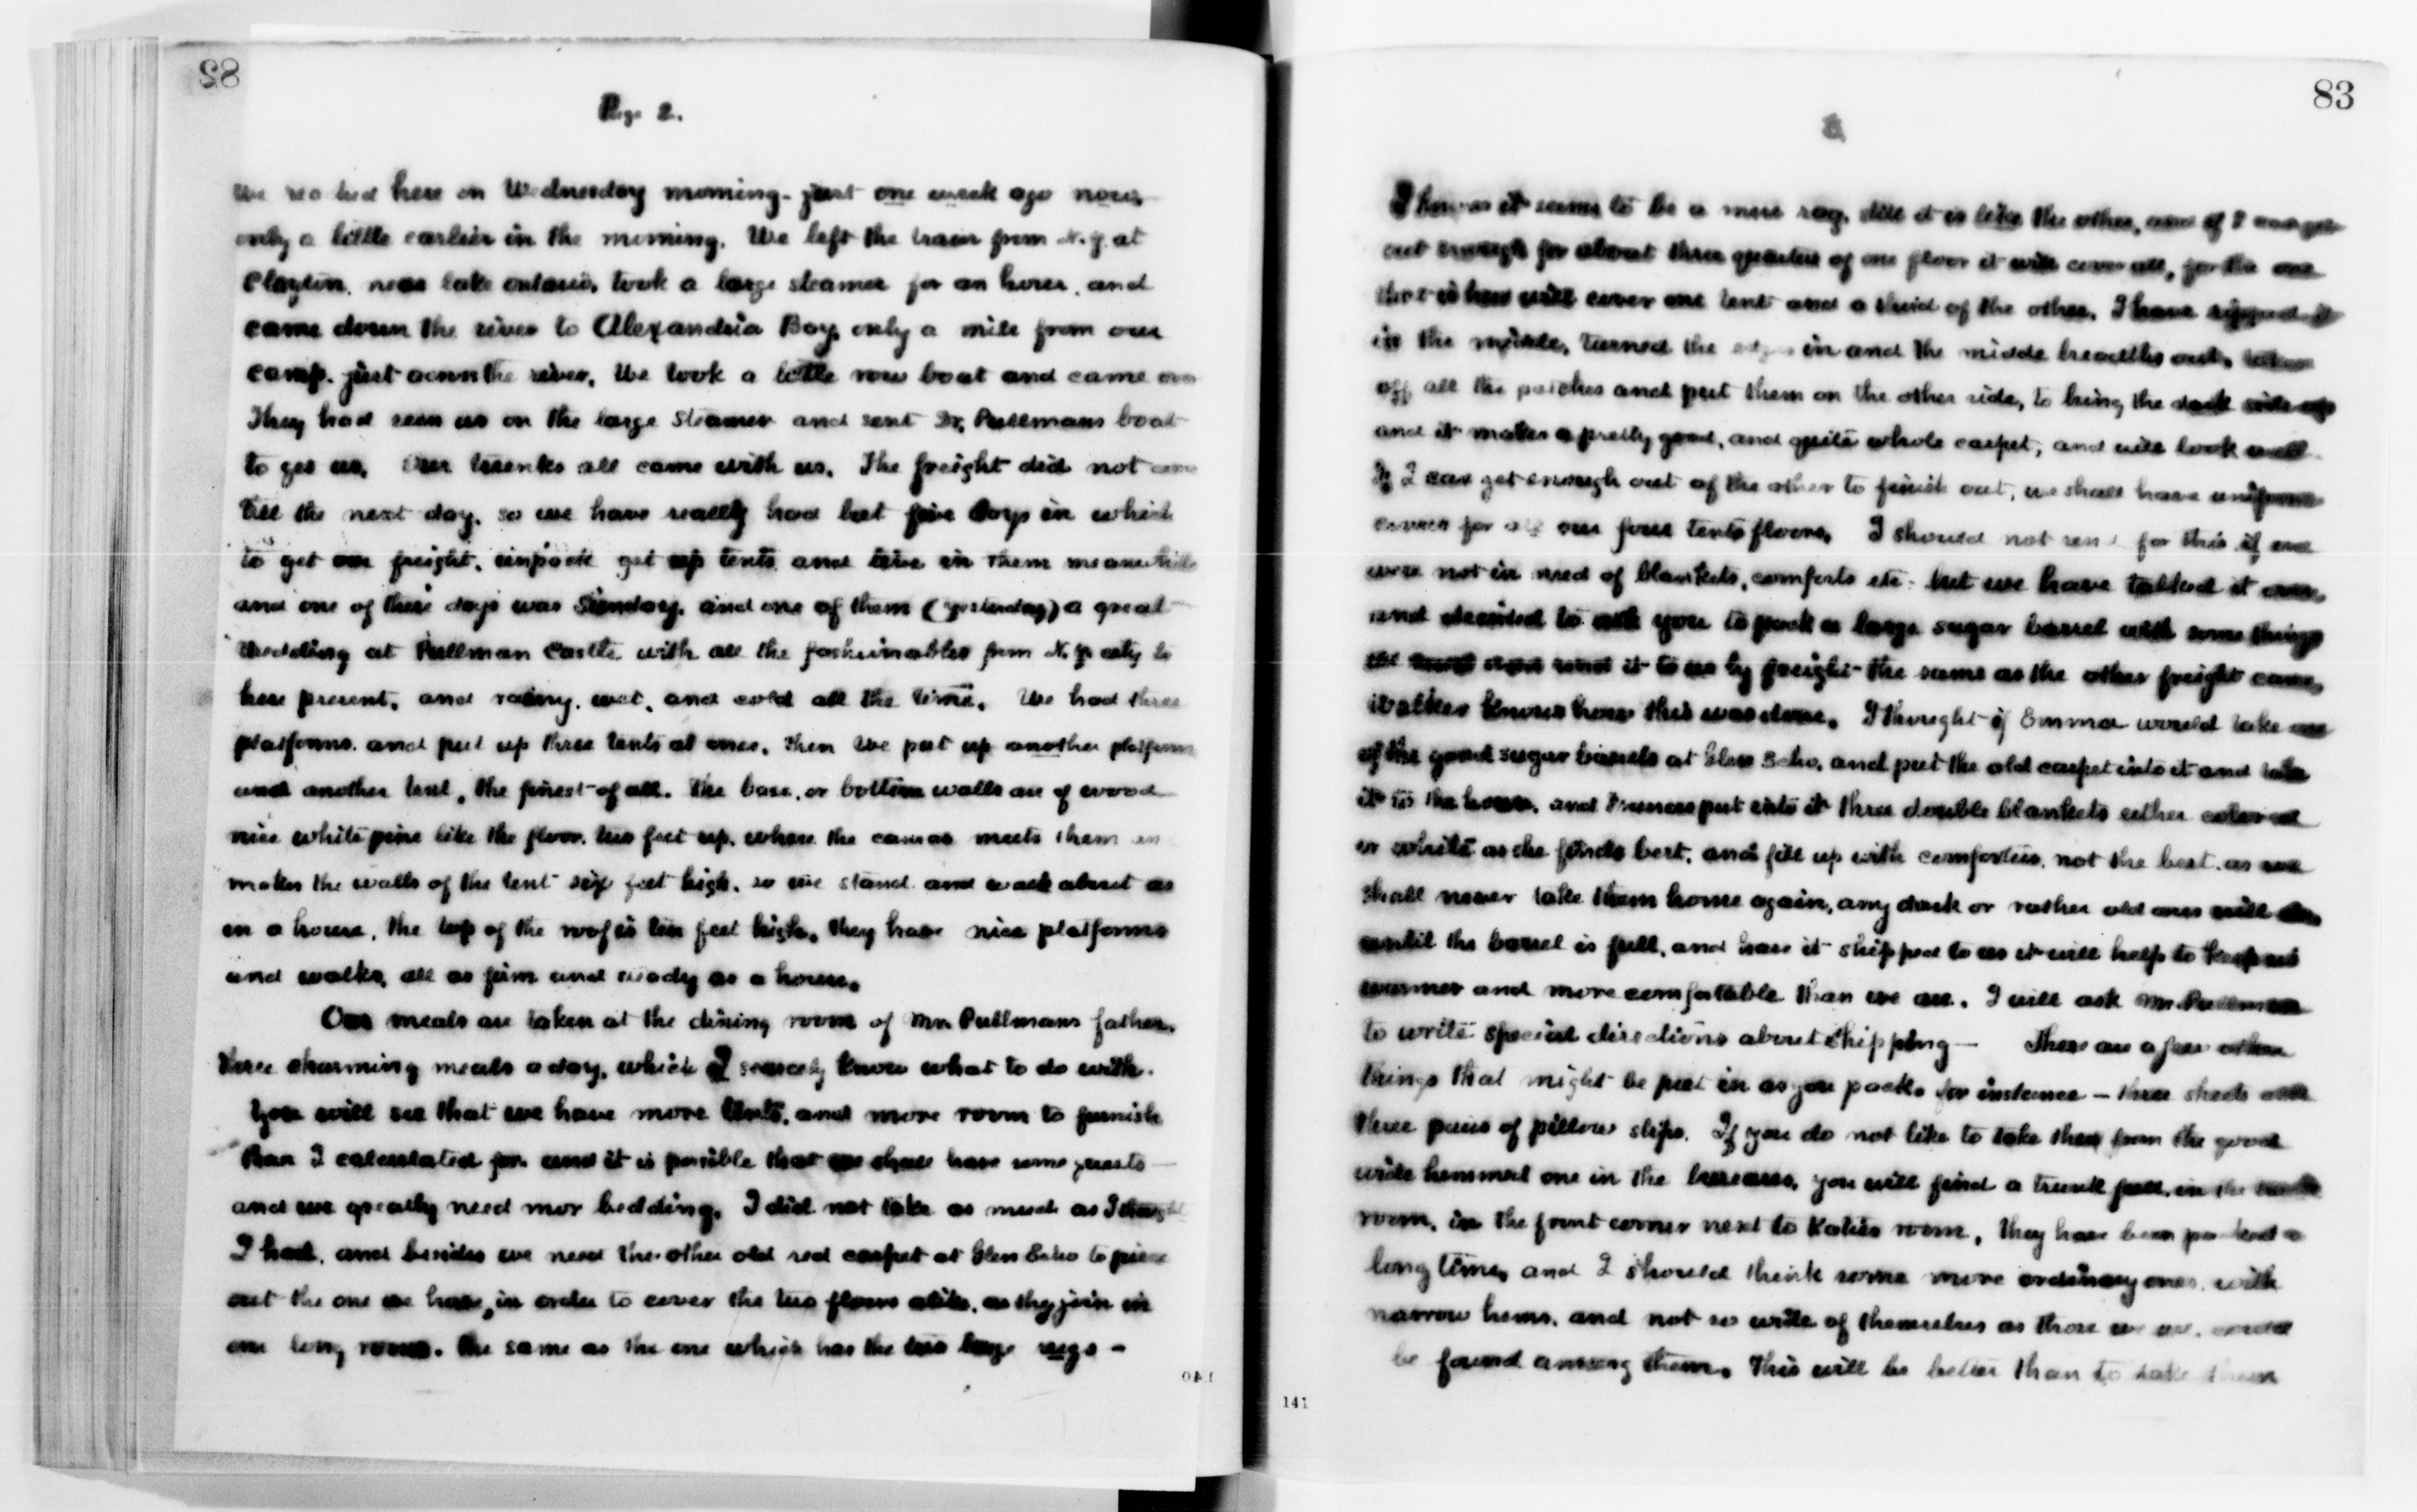 82
Page 2.
We reached here on Wednesday morning - just one week ago now,
only a little earlier in the morning. We left the train from N.Y. at
Clayton, near lake ontario, took a large steamer for an hour, and
came down the river to Alexandria Bay, only a mile from our
camp. just across the river. We took a little row boat and came over
They had seen us on the large steamer and sent Dr. Pullmans boat
to get us. Our trunks all came with us. The freight did not come
till the next day, so we have really had but five days in which
to get our freight, unpack get up tents and live in them meanwhile
and one of these days was Sunday, and one of them (yesterday) a great
Wedding at Pullman Castle with all the fashionables from N.Y. city to
here present, and rainy, wet, and cold all the time. We had three
platforms, and put up three tents at once, then we put up another platform
and another tent, the finest of all. The base, or bottom walls are of wood
nice white pine like the floor, two feet up, where the canvas meets them
makes the walls of the tent six feet high, so we stand and walk about as
in a house, the top of the roof is ten feet high, they have nice platforms
and walks, all as firm and steady as a house.
Our meals are taken at the dining room of Mr. Pullmans father,
three charming meals a day, which I scarcely know what to do with.
You will see that we have more tents, and more room to furnish
than I calculated for and it is possible that we shall have some guests —
and we greatly need mor bedding, I did not take as much as I thought
I had, and besides we need the other old red carpet at Glen Echo to piece
out the one we have, in order to cover the two floors alike, as they join in
one long room. the same as the one which has the two large rugs -
140
83
3
I know it seems to be a mere rag, still it is like the other, and if I can get
out enough for about three quarters of one floor it will cover all, for the one
that is here will cover one tent and a third of the other. I have ripped it
in the middle, turned the edges in and the midde breadths out, taken
off all the patches and put them on the other side, to bring the dark side up
and it makes a pretty good, and quite whole carpet, and will look well
If I can get enough out of the other to finish out, we shall have uniform
covers for all our four tents floors. I should not send for this if we
were not in need of blankets, comforts etc. but we have talked it over,
and decided to ask you to pack a large sugar barrel with some things
we need and send it to us by freight - the same as the other freight came,
Walker knows how this was done. I thought if Emma would take one
of the good sugar barrels at Glen Echo, and put the old carpet into it and take
it to the house, and put into it three double blankets either colored
or white as she finds best, and fill up with comforters, not the best, as we
shall never take them home again, any dark or rather old ones will do,
until the barrel is full, and have it shipped to us it will help to keep us
warmer and more comfortable than we are. I will ask Mr. Pullman
to write special directions about shipping — There are a few other
things that might be put in as you pack, for instance - three sheets and
three pairs of pillow slips. If you do not like to take them from the good
wide hemmed one in the bureaus, you will find a trunk full, in the
room, in the front corner next to Katies room, they have been packed a
long time, and I should think some more ordinary ones, with
narrow hems, and not so wide of themselves as those we use, could
be found among them. This will be better than to take them
141